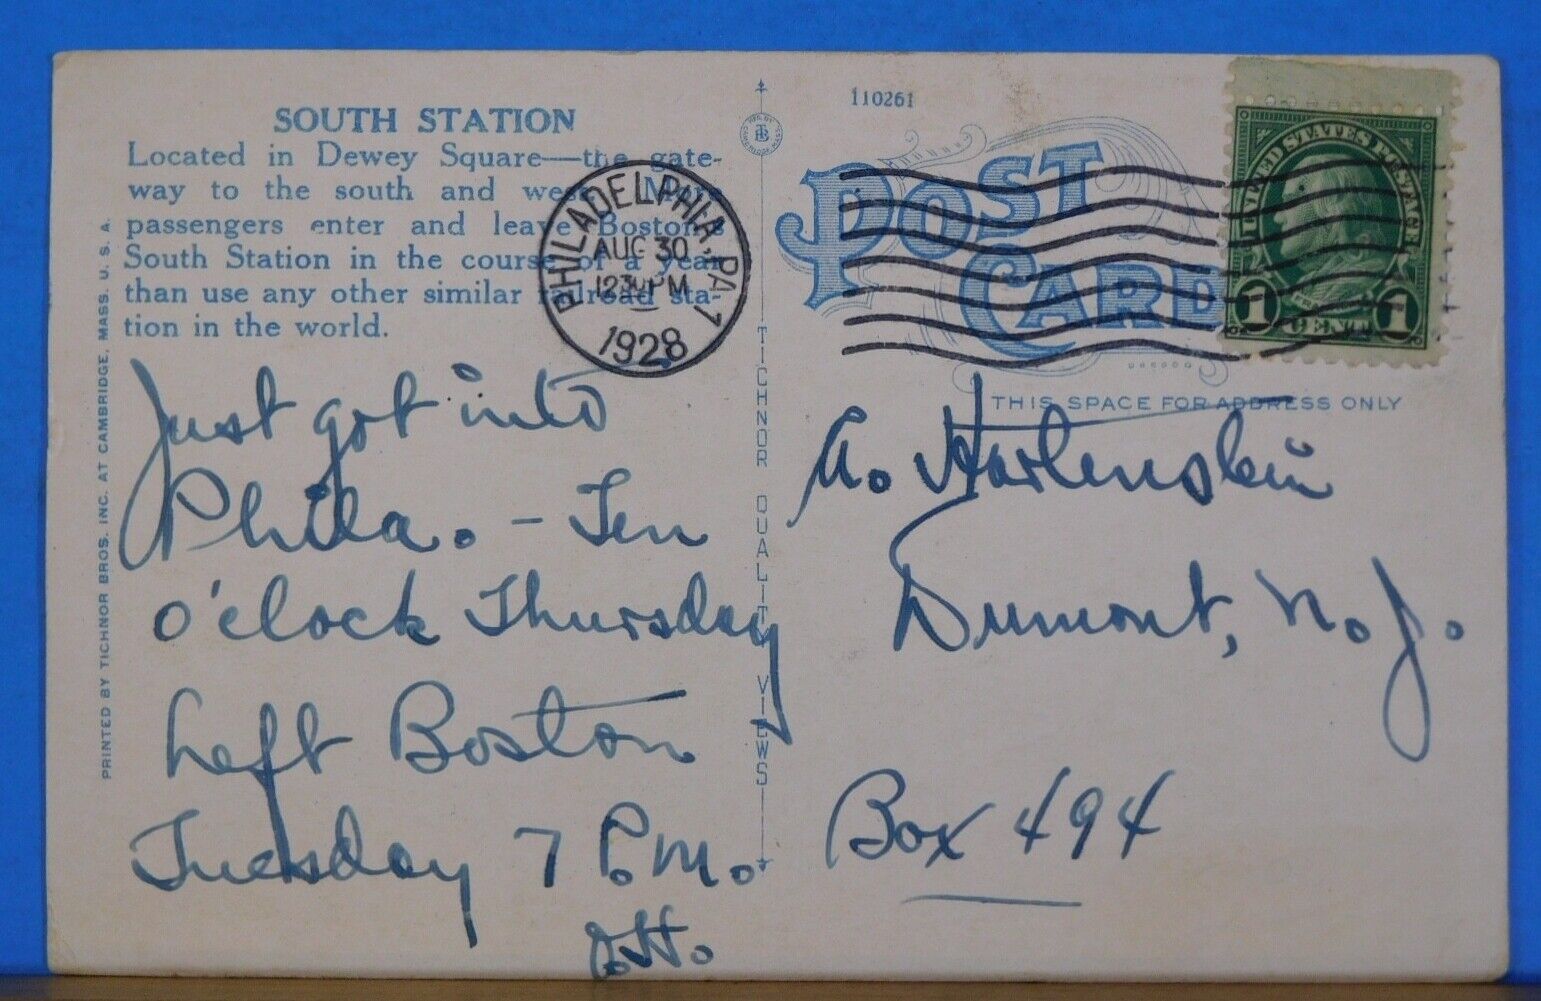 SOUTH STATION
Located in Dewey Square—the gate-
way to the south and west. More
passengers enter and leave Boston's
South Station in the course of a year
than use any other similar railroad sta-
tion in the world.
PRINTED BY TICHNOR BROS. INC. AT CAMBRIDGE, MASS. U. S. A.
PHILADELPHIA, PA 1
AUG 30
1230PM
1928
Just got into
Phila. - Ten
o'clock Thursday
Left Boston
Tuesday 7 P.M.
TICHNOR QUALITY VIEWS
110261
POST
CARD
UNITED STATES POSTAGE
1 CENT 1
THIS SPACE FOR ADDRESS ONLY
A. Hartenstein
Dumont, N. J.
Box 494